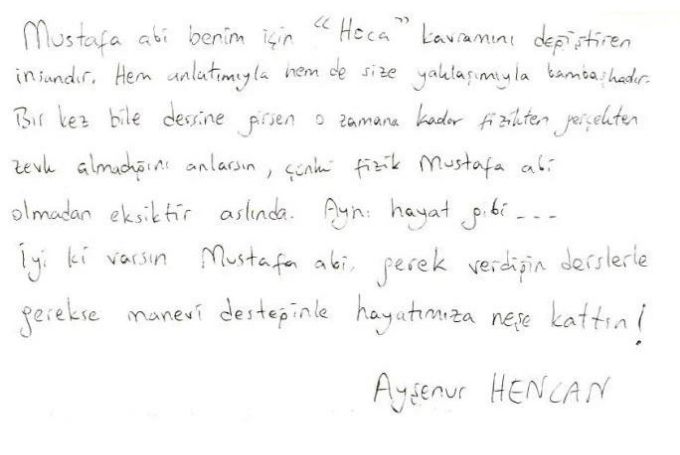 Mustafa abi benim için "Hoca" kavramını değiştiren
insandır. Hem anlatımıyla hem de size yaklaşımıyla bambaşkadır.
Bir kez bile dersine girsen o zamana kadar fizikten gerçekten
zevk almadığını anlarsın, çünkü fizik Mustafa abi
olmadan eksiktir aslında. Aynı hayat gibi ---
İyi ki varsın Mustafa abi, gerek verdiğin derslerle
gerekse manevî desteğinle hayatımıza neşe kattın!
Ayşenur HENCAN